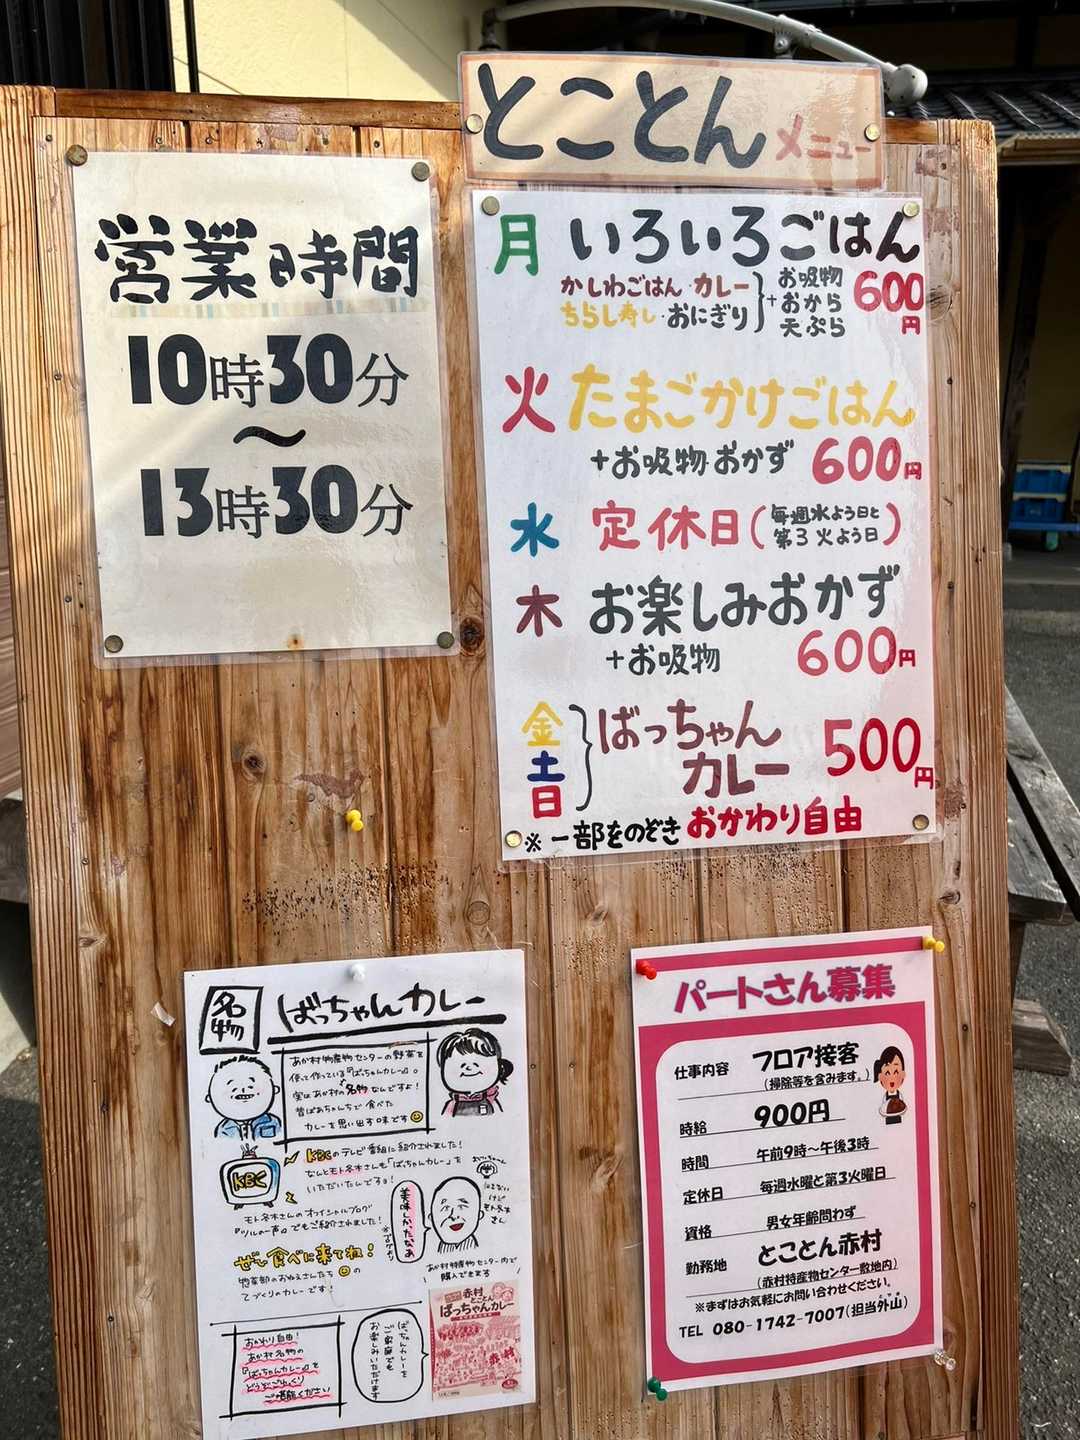 とことん メニュー
営業時間
10時30分
〜
13時30分
月 いろいろごはん
かしわごはん・カレー
ちらし寿し・おにぎり
+
お吸物
おから
天ぷら
600円
火 たまごかけごはん
+お吸物・おかず 600円
水 定休日(毎週水よう日と
第3火よう日)
木 お楽しみおかず
+お吸物 600円
金
土
日
ばっちゃん
カレー 500円
※一部をのぞき おかわり自由
名物 ばっちゃんカレー
あか村物産物センターの野菜を
使って作っている『ばっちゃんカレー』。
実はあか村の名物なんですよ!
昔ばあちゃんちで食べた
カレーを思い出す味です
KBCのテレビ番組に紹介されました!
なんとモト冬木さんも「ばっちゃんカレー」を
いただいたんですョ!
KBC
モト冬木さんのオフィシャルブログ
『ツルの一声』でもご紹介されました!
美味しかったなぁ
ぜひ食べに来てね!
惣菜部のおねえさんたちの
てづくりのカレーです!
あか村特産物センター内で
購入できます
おかわり自由!
あか村名物の
『ばっちゃんカレー』を
どうぞごゆっくり
ご堪能ください
ばっちゃんカレーを
ご家庭でも
お楽しみいただけます
赤村
とことん
ばっちゃんカレー
赤村
パートさん募集
仕事内容 フロア接客
(掃除等を含みます。)
時給 900円
時間 午前9時〜午後3時
定休日 毎週水曜と第3火曜日
資格 男女年齢問わず
勤務地 とことん赤村
(赤村特産物センター敷地内)
※まずはお気軽にお問い合わせください。
TEL 080-1742-7007(担当外山)